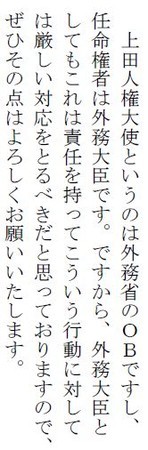 上田人権大使というのは外務省のＯＢですし、
任命権者は外務大臣です。ですから、外務大臣と
してもこれは責任を持ってこういう行動に対して
は厳しい対応をとるべきだと思っておりますので、
ぜひその点はよろしくお願いいたします。